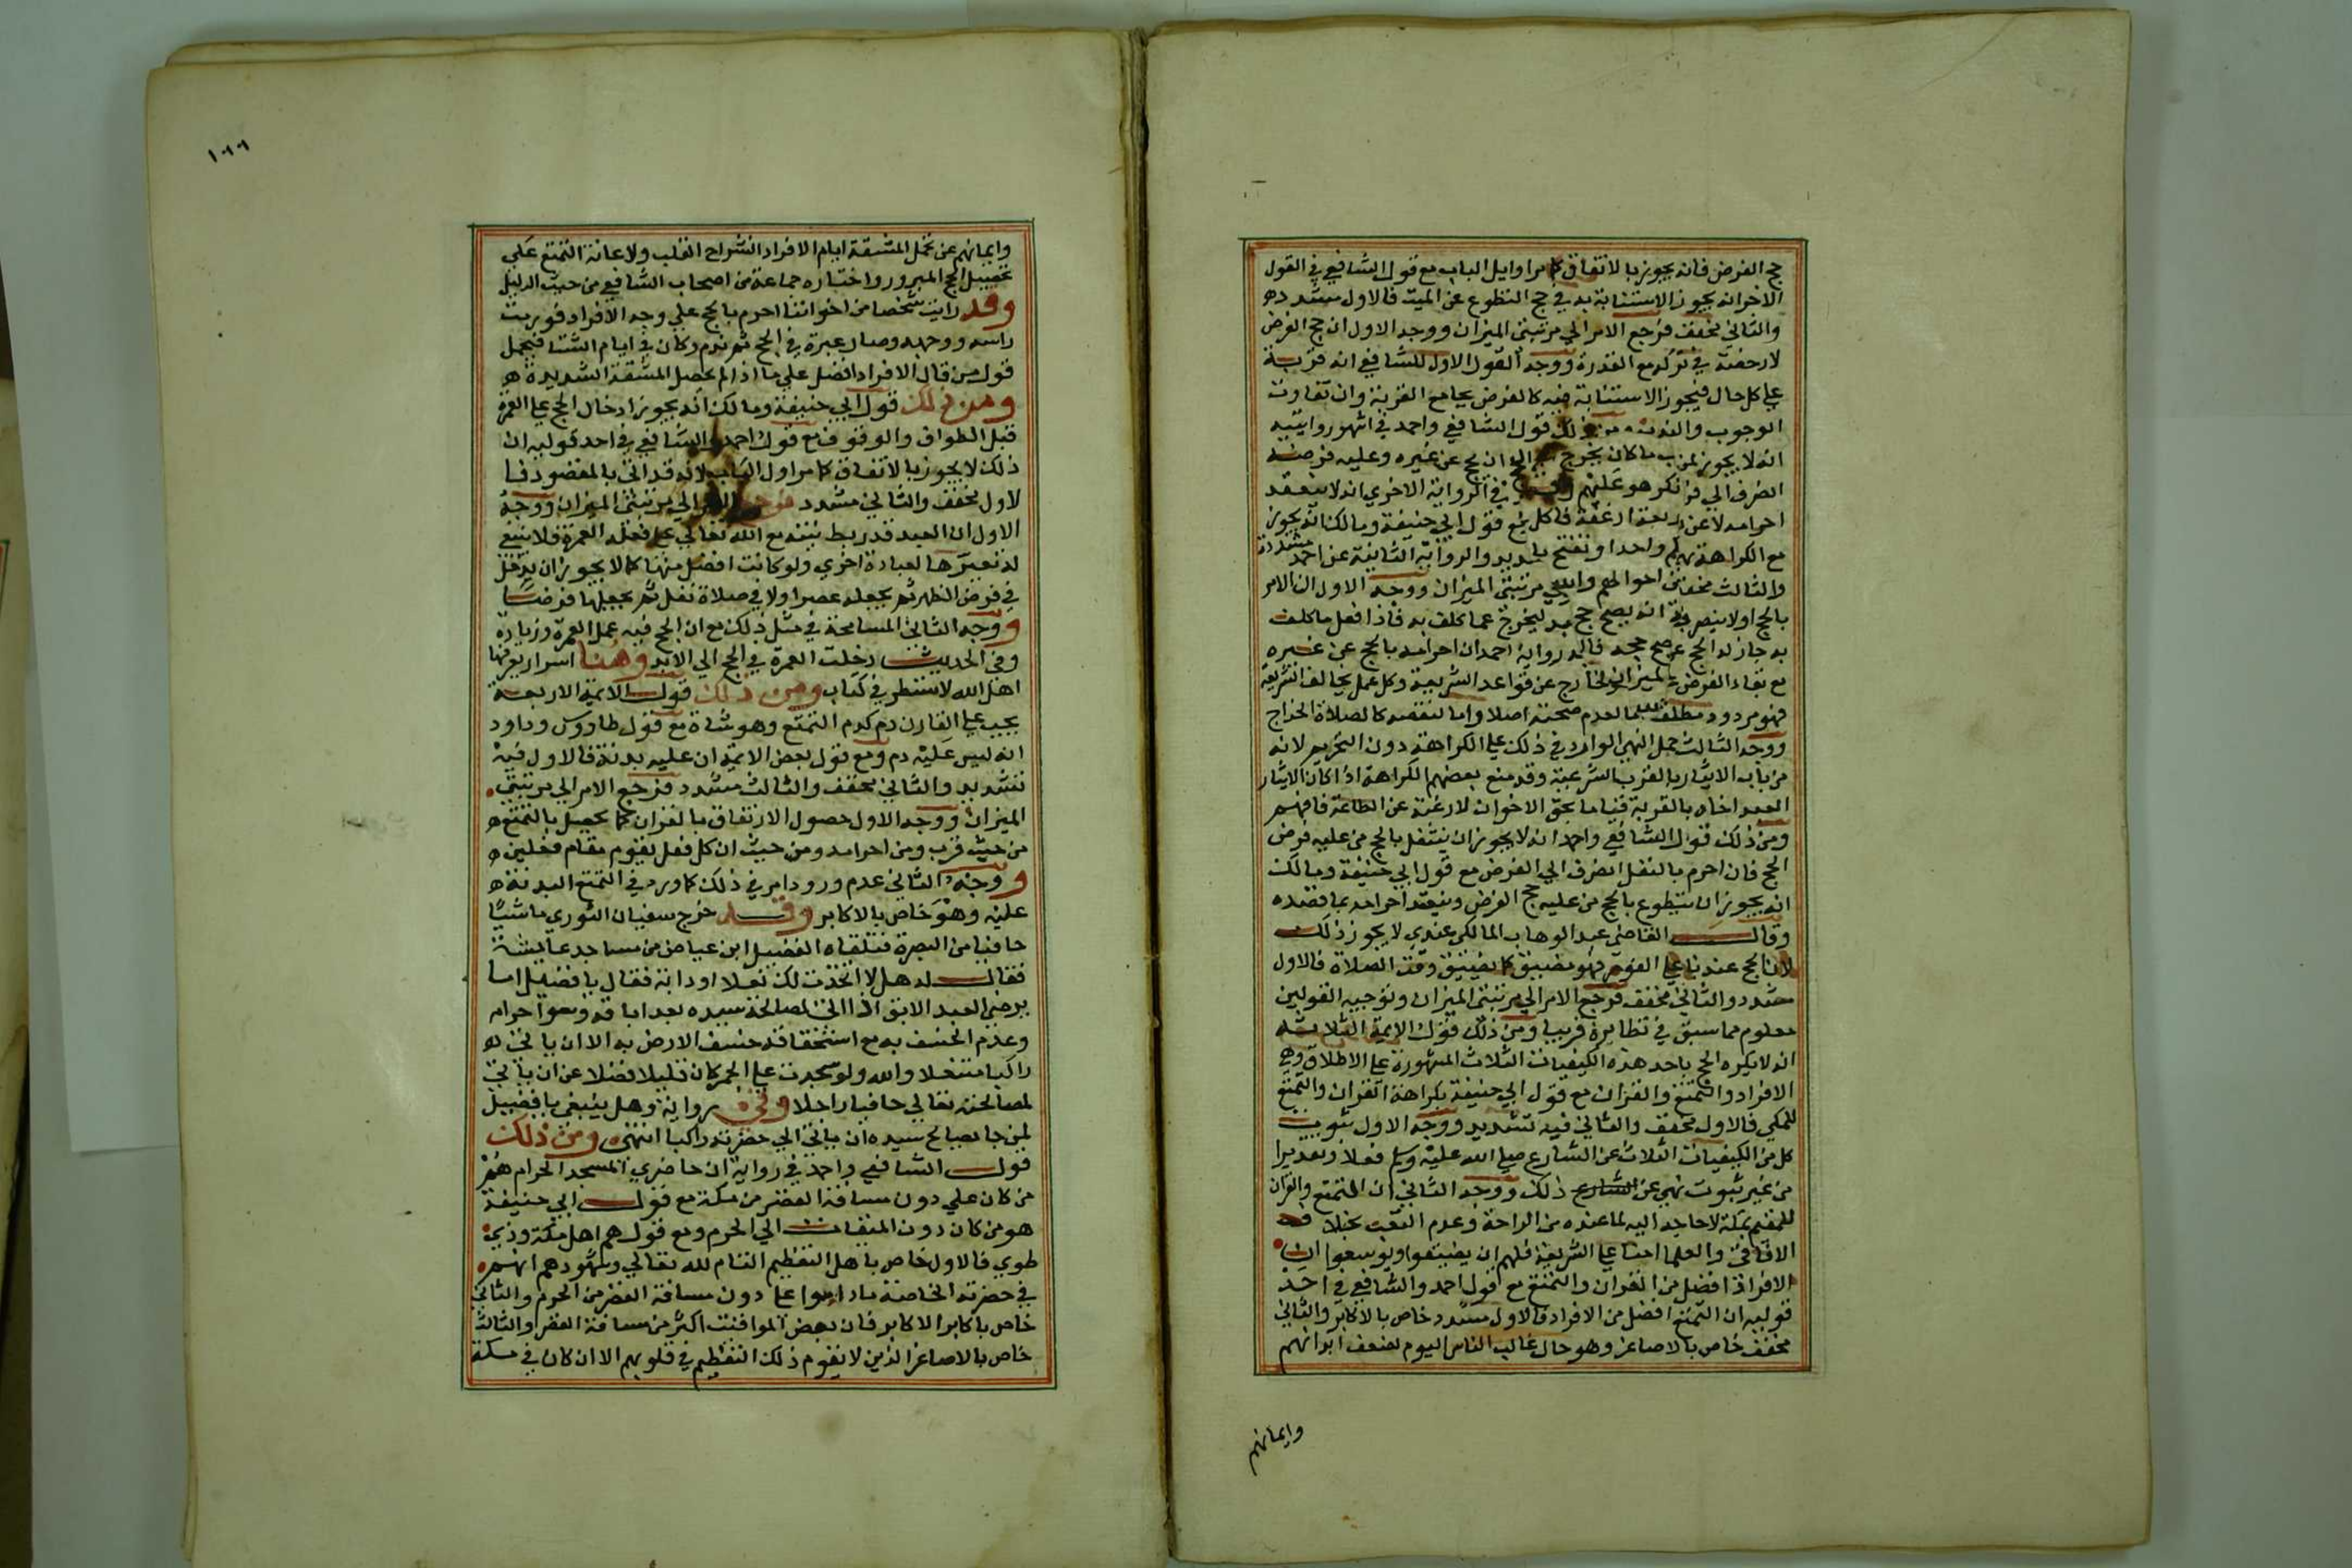 حج الفرض فانه يجوز بالاتفاق كما مر اوايل الباب مع قول الشافعي في القول
الاخر انه يجوز الاستنابة به في حج التطوع عن الميت فالاول مشدد
والثاني مخفف فرجع الامر الي مرتبتي الميزان ووجه الاول ان حج الفرض
لا رخصة في تركه مع القدرة ووجه القول الاول للشافعي انه قربة
علي كل حال فيجوز الاستنابة فيه كالفرض بجامع القربة وان تفاوت
الوجوب والندب ومن ذلك قول الشافعي واحمد في اشهر روايتيه
انه لا يجوز لمن ان يحج عن غيره وعليه فرضه
في الرواية الاخري انه لا ينعقد
احرامه لا عن قول ابي حنيفة ومالك انه يجوز
مع الكراهة والرواية الثانية عن احمد مشدد
والثالث مخفف مرتبتي الميزان ووجه الاول ان الامر
بالحج اولا ينصرف فاذا فعل ما كلف
به جاز له الحج عن رواية احمد ان احرامه بالحج عن غيره
مع بقاء الفرض خارج عن قواعد الشريعة وكل عمل يخالف الشريعة
فهو مردود مطلقا اما لعدم صحته اصلا واما لنقصه كالصلاة الخداج
ووجه الثالث حمل النهي الوارد في ذلك علي الكراهة دون التحريم لانه
من باب الايثار بالقرب الشرعية وقد منع بعضهم الكراهة اذا كان الايثار
العبد اخاه بالقربة قياما بحق الاخوان لا رغبة عن الطاعة فافهم
ومن ذلك قول الشافعي واحمد انه لا يجوز ان يتنفل بالحج من عليه فرض
الحج فان احرم بالنفل انصرف الي الفرض مع قول ابي حنيفة ومالك
انه يجوز ان يتطوع بالحج من عليه حج الفرض وينعقد احرامه بما قصده
وقال القاضي عبد الوهاب المالكي عندي لا يجوز ذلك
لان الحج عندنا علي الفور فهو مضيق كما يضيق وقت الصلاة فالاول
مشدد والثاني مخفف فرجع الامر الي مرتبتي الميزان وتوجيه القولين
معلوم مما سبق في نظايره قريبا ومن ذلك قول الايمة الثلاثة
انه لا يكره الحج باحد هذه الكيفيات الثلاث المشهورة علي الاطلاق وهي
الافراد والتمتع والقران مع قول ابي حنيفة بكراهة القران والتمتع
للمكي فالاول مخفف والثاني فيه تشديد ووجه الاول ثبوت
كل من الكيفيات الثلاث عن الشارع صلي الله عليه وسلم فعلا وتقديرا
من غير ثبوت نهي عن الشارع ذلك ووجه الثاني ان المتمتع والقران
للمقيم بمكة لا حاجه اليه لما عنده من الراحة وعدم التعب بخلاف
الافاقي والعلما امنا علي الشريعة فلهم ان يضيقوا ويوسعوا
الافراد افضل من القران والتمتع مع قول احمد والشافعي في احد
قوليه ان التمتع افضل من الافراد فالاول مشدد خاص بالاكابر والثاني
مخفف خاص بالاصاغر وهو حال غالب الناس اليوم لضعف ابدانهم
وايمانهم
وايمانهم عن تحمل المشقة ايام الافراد انشراح القلب ولاعانة التمتع علي
تحصيل الحج المبرور واختاره جماعة من اصحاب الشافعي من حيث الدليل
وقد رايت شخصا من اخواننا احرم بالحج علي وجه الافراد فورمت
راسه ووجهه وصار عبرة في الحج ثم ندم وكان في ايام الشتا فيحمل
قول من قال الافراد افضل علي ما اذا لم يحصل المشقة الشديدة
ومن ذلك قول ابي حنيفة ومالك انه يجوز ادخال الحج علي العمرة
قبل الطواف والوقوف مع قول احمد والشافعي في احد قوليه ان
ذلك لا يجوز بالاتفاق كما مر اول الباب لانه قد اتي بالمقصود فا
لاول مخفف والثاني مشدد فرجع الامر الي مرتبتي الميزان ووجه
الاول ان العبد قد ربط نيته مع الله تعالي علي فعله العمرة فلا ينبغي
له تغييرها لعبادة اخري ولو كانت افضل منها كما لا يجوز ان يدخل
في فرض الظهر ثم يجعله عصرا ولا في صلاة نفل ثم يجعلها فرضا
ووجه الثاني المسامحة في مثل ذلك مع ان الحج فيه عمل العمرة وزيادة
وفي الحديث دخلت العمرة في الحج الي الابد وهنا اسرار يعرفها
اهل الله لا تسطر في كتاب ومن ذلك قول الايمة الاربعة
يجب علي القارن دم كدم التمتع وهو شاة مع قول طاووس وداود
انه ليس عليه دم ومع قول بعض الايمة ان عليه بدنة فالاول فيه
تشديد والثاني مخفف والثالث مشدد فرجع الامر الي مرتبتي
الميزان ووجه الاول حصول الارتفاق بالقران كما يحصل بالتمتع
من حيث قرب ومن احرامه ومن حيث ان كل فعل يقوم مقام فعلين
ووجه الثاني عدم ورود امر في ذلك كما ورد في التمتع البدنة
عليه وهو خاص بالاكابر وقد خرج سفيان الثوري ماشيا
حافيا من البصرة فتلقاه الفضيل ابن عياض من مساجد عايشة
فقال له هل لا اتخذت لك نعلا او دابة فقال يا فضيل اما
يرضي العبد الابق اذا اتي لمصالحة سيده بعد اباقه وسوا حرامه
وعدم الخسف به مع استحقاقه خسف الارض به الا ان ياتي له
راكبا متنعلا والله ولو سجدت علي الجمر كان قليلا فضلا عن ان ياتي
لمصالحته تعالي حافيا راجلا وفي رواية وهل ينبغي يا فضيل
لمن جا يصالح سيده ان ياتي الي حضرته راكبا انتهي ومن ذلك
قول الشافعي واحمد في رواية ان حاضري المسجد الحرام هم
من كان علي دون مسافة القصر من مكة مع قول ابي حنيفة
هو من كان دون الميقات الي الحرم ومع قول هم اهل مكة وذي
طوي فالاول خاص باهل التعظيم التام لله تعالي وشهودهم انهم
في حضرته الخاصة ما داموا علي دون مسافة القصر من الحرم والثاني
خاص باكابر الاكابر فان بعض المواقيت اكثر من مسافة القصر والثالث
خاص بالاصاغر الذين لا يقوم ذلك التعظيم في قلوبهم الا ان كان في مكة